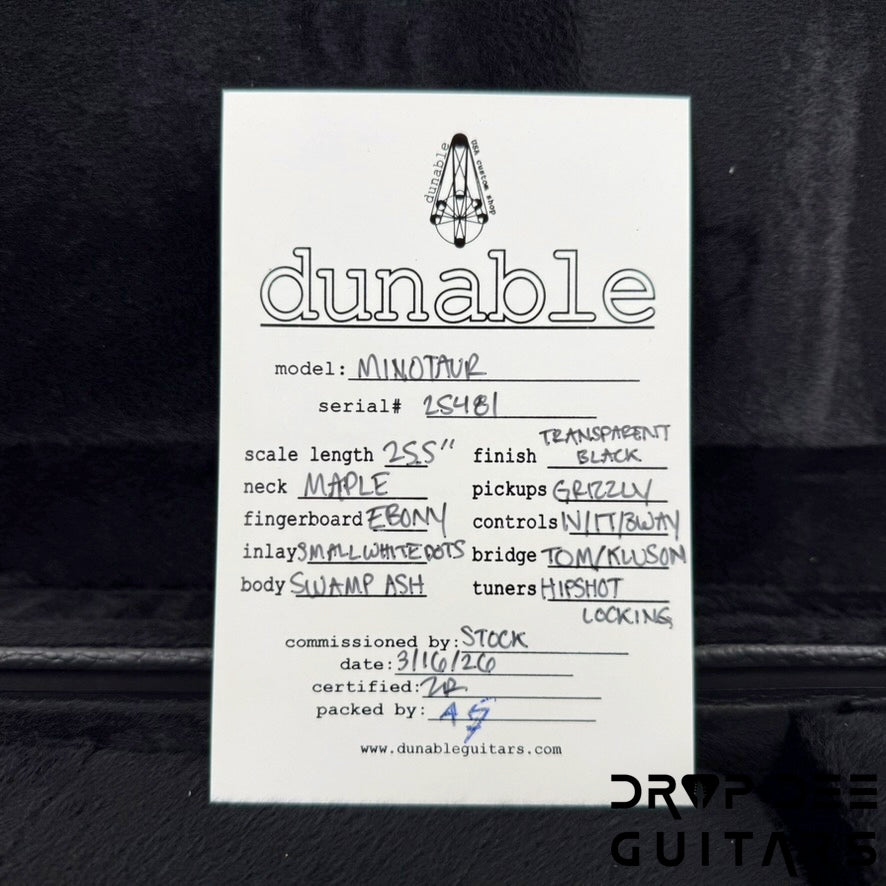 dunable USA custom shop
dunable
model: MINOTAUR
serial# 25481
scale length 25.5" finish TRANSPARENT BLACK
neck MAPLE pickups GRIZZLY
fingerboard EBONY controls 1V/1T/3WAY
inlay SMALL WHITE DOTS bridge TOM/KLUSON
body SWAMP ASH tuners HIPSHOT LOCKING
commissioned by: STOCK
date: 3/16/26
certified:
packed by:
www.dunableguitars.com
DROP DEE
GUITARS